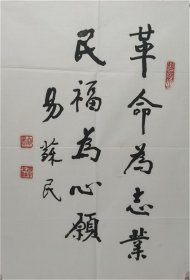 革命為志業
民福為心願
易蘇民